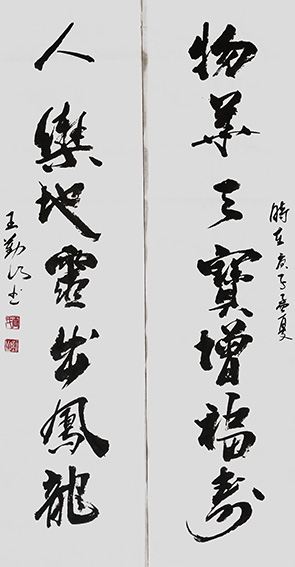 時在庚子孟夏
物華天寶增福壽
人樂地靈出鳳龍
王勤书